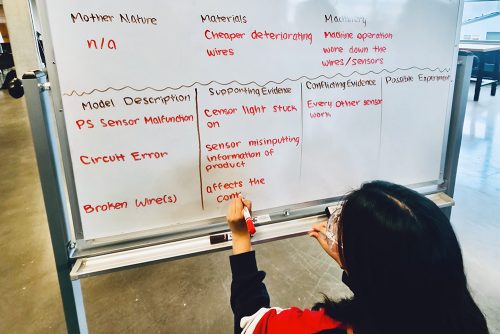 Mother Nature
n/a
Materials
Cheaper deteriorating
wires
Machinery
Machine operation
wore down the
wires/sensors
Model Description
PS Sensor Malfunction
Circuit Error
Broken Wire(s)
Supporting Evidence
Censor light stuck
on
sensor misinputting
information of
product
affects the
Conflicting Evidence
Every other sensor
work
Possible Experiment